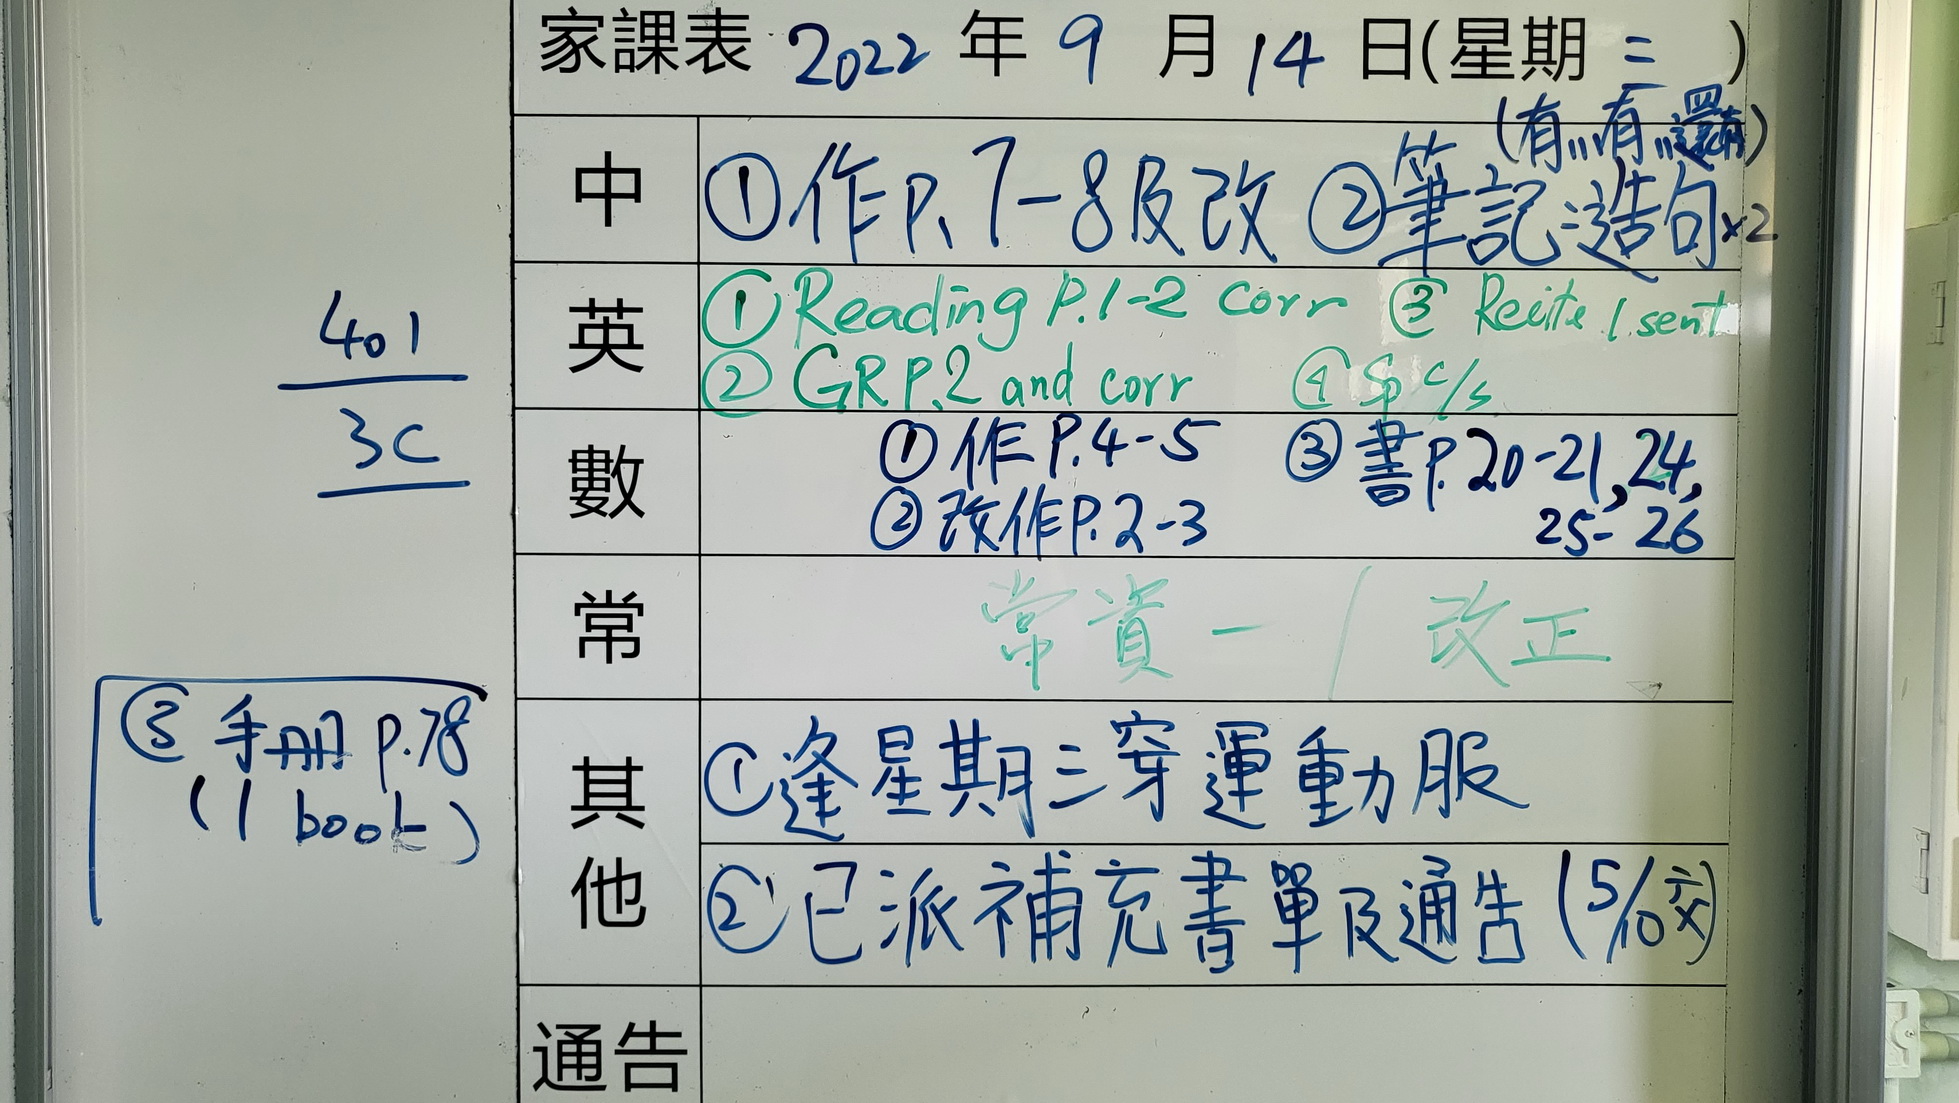 家課表 2022 年 9 月 14 日(星期 三 )
(有…有…還有)
中 ①作P.7-8及改 ②筆記:造句×2
英 ①Reading P.1-2 corr ③ Recite 1 sent
②GR P.2 and corr ④ Sp c/s
401
3C
數 ①作P.4-5 ③書P.20-21,24,
②改作P.2-3 25-26
常 常資一 / 改正
③手冊 p.78
(1 book)
其他 ①逢星期三穿運動服
②已派補充書單及通告(5/10交)
通告